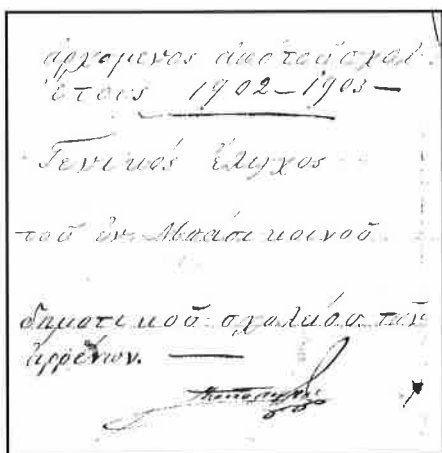 ἀρχόμενος ἀπὸ τοῦ σχολ.
ἔτους 1902–1903–
Γενικός ἔλεγχος
τοῦ ἐν Μπάσι κοινοῦ
δημοτικοῦ σχολείου τῶν
ἀρρένων. —